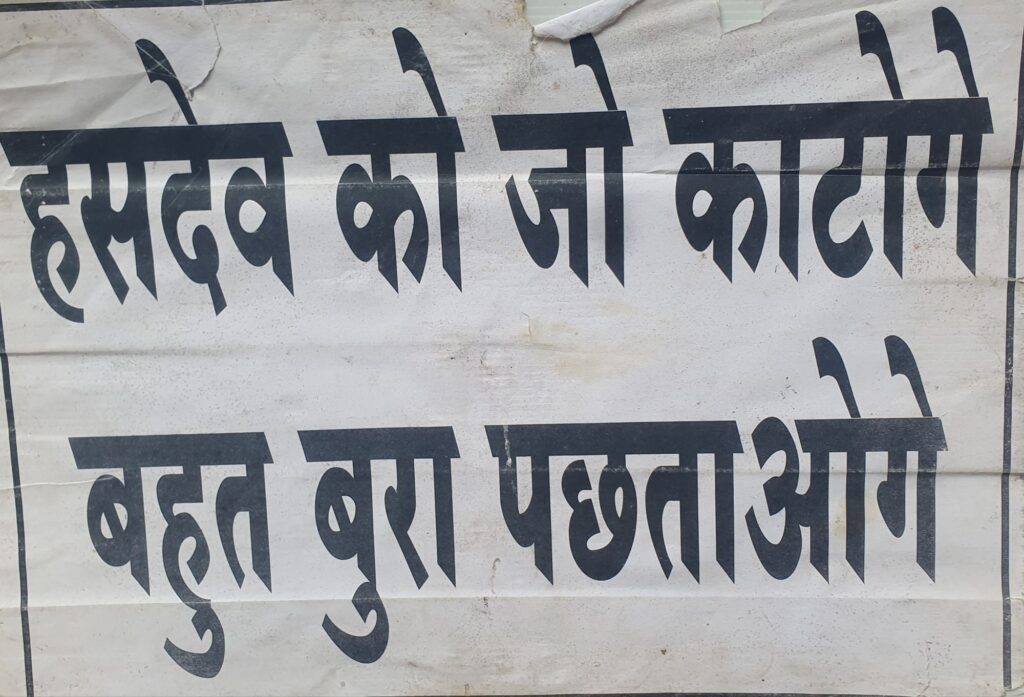 हसदेव को जो काटोगे
बहुत बुरा पछताओगे